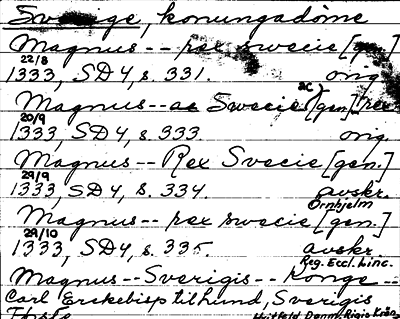 Sverige, konungadöme
Magnus -- rex swecie [gen.]
22/8
1333, SD4, s. 331. orig.
Magnus -- ac Swecie [gen.] rex
20/9
1333, SD4, s. 333 orig.
Magnus -- Rex Svecie [gen.]
29/9
1333, SD4, s. 334. avskr.
Örnhjelm
Magnus -- rex swecie [gen.]
29/10
1333, SD4, s. 335. avskr.
Reg. Eccl. Linc.
Magnus -- Sverigis -- Konge --
Carl Erskebisp til hund, Sverigis
Huitfeld, Danm. Rigis Krön.